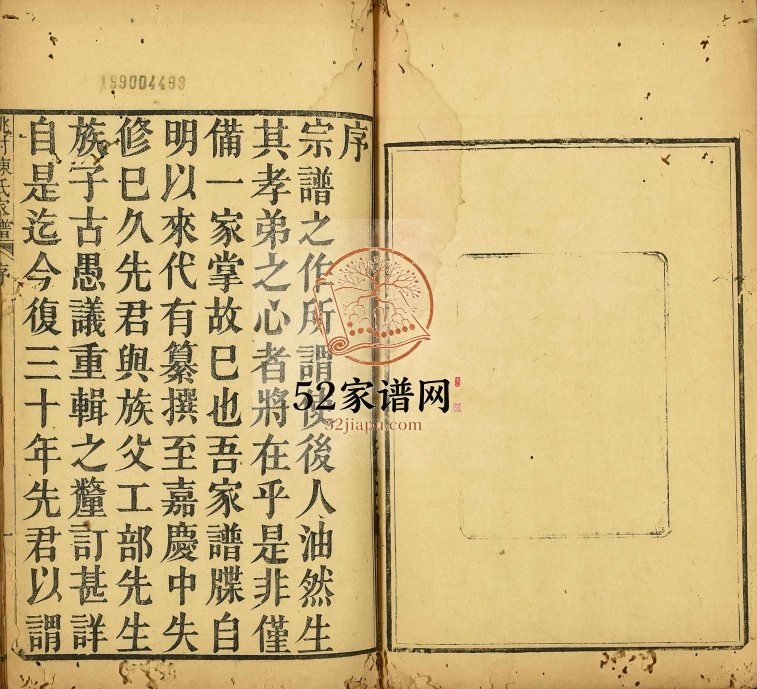 199004499
序
宗譜之作所謂使後人油然生
其孝弟之心者將在乎是非僅
備一家掌故巳也吾家譜牒自
明以來代有纂撰至嘉慶中失
修巳久先君與族父工部先生
族子古愚議重輯之釐訂甚詳
自是迄今復三十年先君以謂
村陳氏家譜 序
52家谱网
52jiapu.com